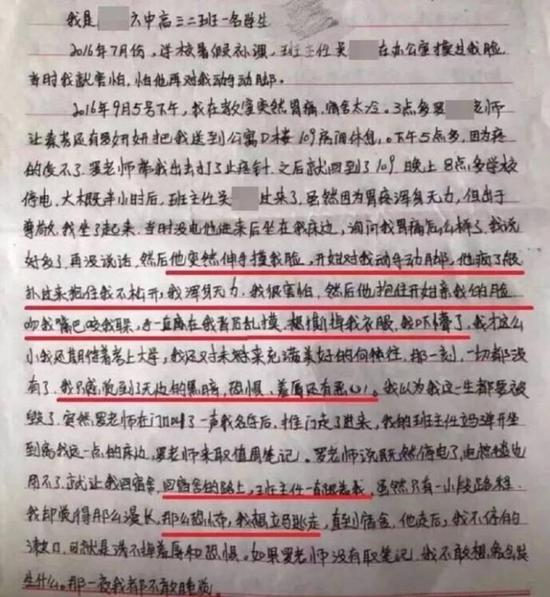 我是 六中高三二班一名学生
2016年7月份,学校暑假补课,班主任吴 在办公室摸过我脸
当时我就害怕,怕他再对我动手动脚。
2016年9月5号下午,我在教室突然胃痛,宿舍太冷。3点多罗 老师
让 还有罗妍妍把我送到公寓D楼109房间休息。下午5点多,因为疼
的受不了罗老师带我出去打了止疼针,之后就回到了109 晚上8点多学校
停电,大概半小时后,班主任吴 过来了,虽然因为胃疼浑身无力,但出于
尊敬,我坐了起来,当时没电他进来后坐在我床边,询问我胃痛怎么样了,我说
好多了,再没说话,然后他突然伸手摸我脸,开始对我动手动脚,他疯了般
扑过来抱住我不松开,我浑身无力,我很害怕,然后他抱住开始亲我的脸
吻我嘴巴咬我耳朵,手一直在我背后乱摸,想撕掉我衣服,我吓懵了,我才这么
小我还期待着考上大学,我还对未来充满美好的向往,那一刻,一切都没
有了,我只感觉到了无边的黑暗,恐惧、羞辱还有恶心!我以为我这一生都要被
毁了,突然罗老师在门口叫了一声我名后,推门走了进来,我的班主任 弹开坐
到离我远一点的床边,罗老师来取值周笔记。罗老师说既然停电了,电热毯也
用不了,就让我回宿舍,回宿舍的路上,班主任一直跟着我,虽然只有一小段路程
我却觉得那么漫长,那么恐怖,我想立马逃走,直到宿舍,他走后,我不停的
漱口,可就是洗不掉羞辱和恐惧。如果罗老师没有取笔记,我不敢想象会发
生什么。那一夜我都不敢睡觉。